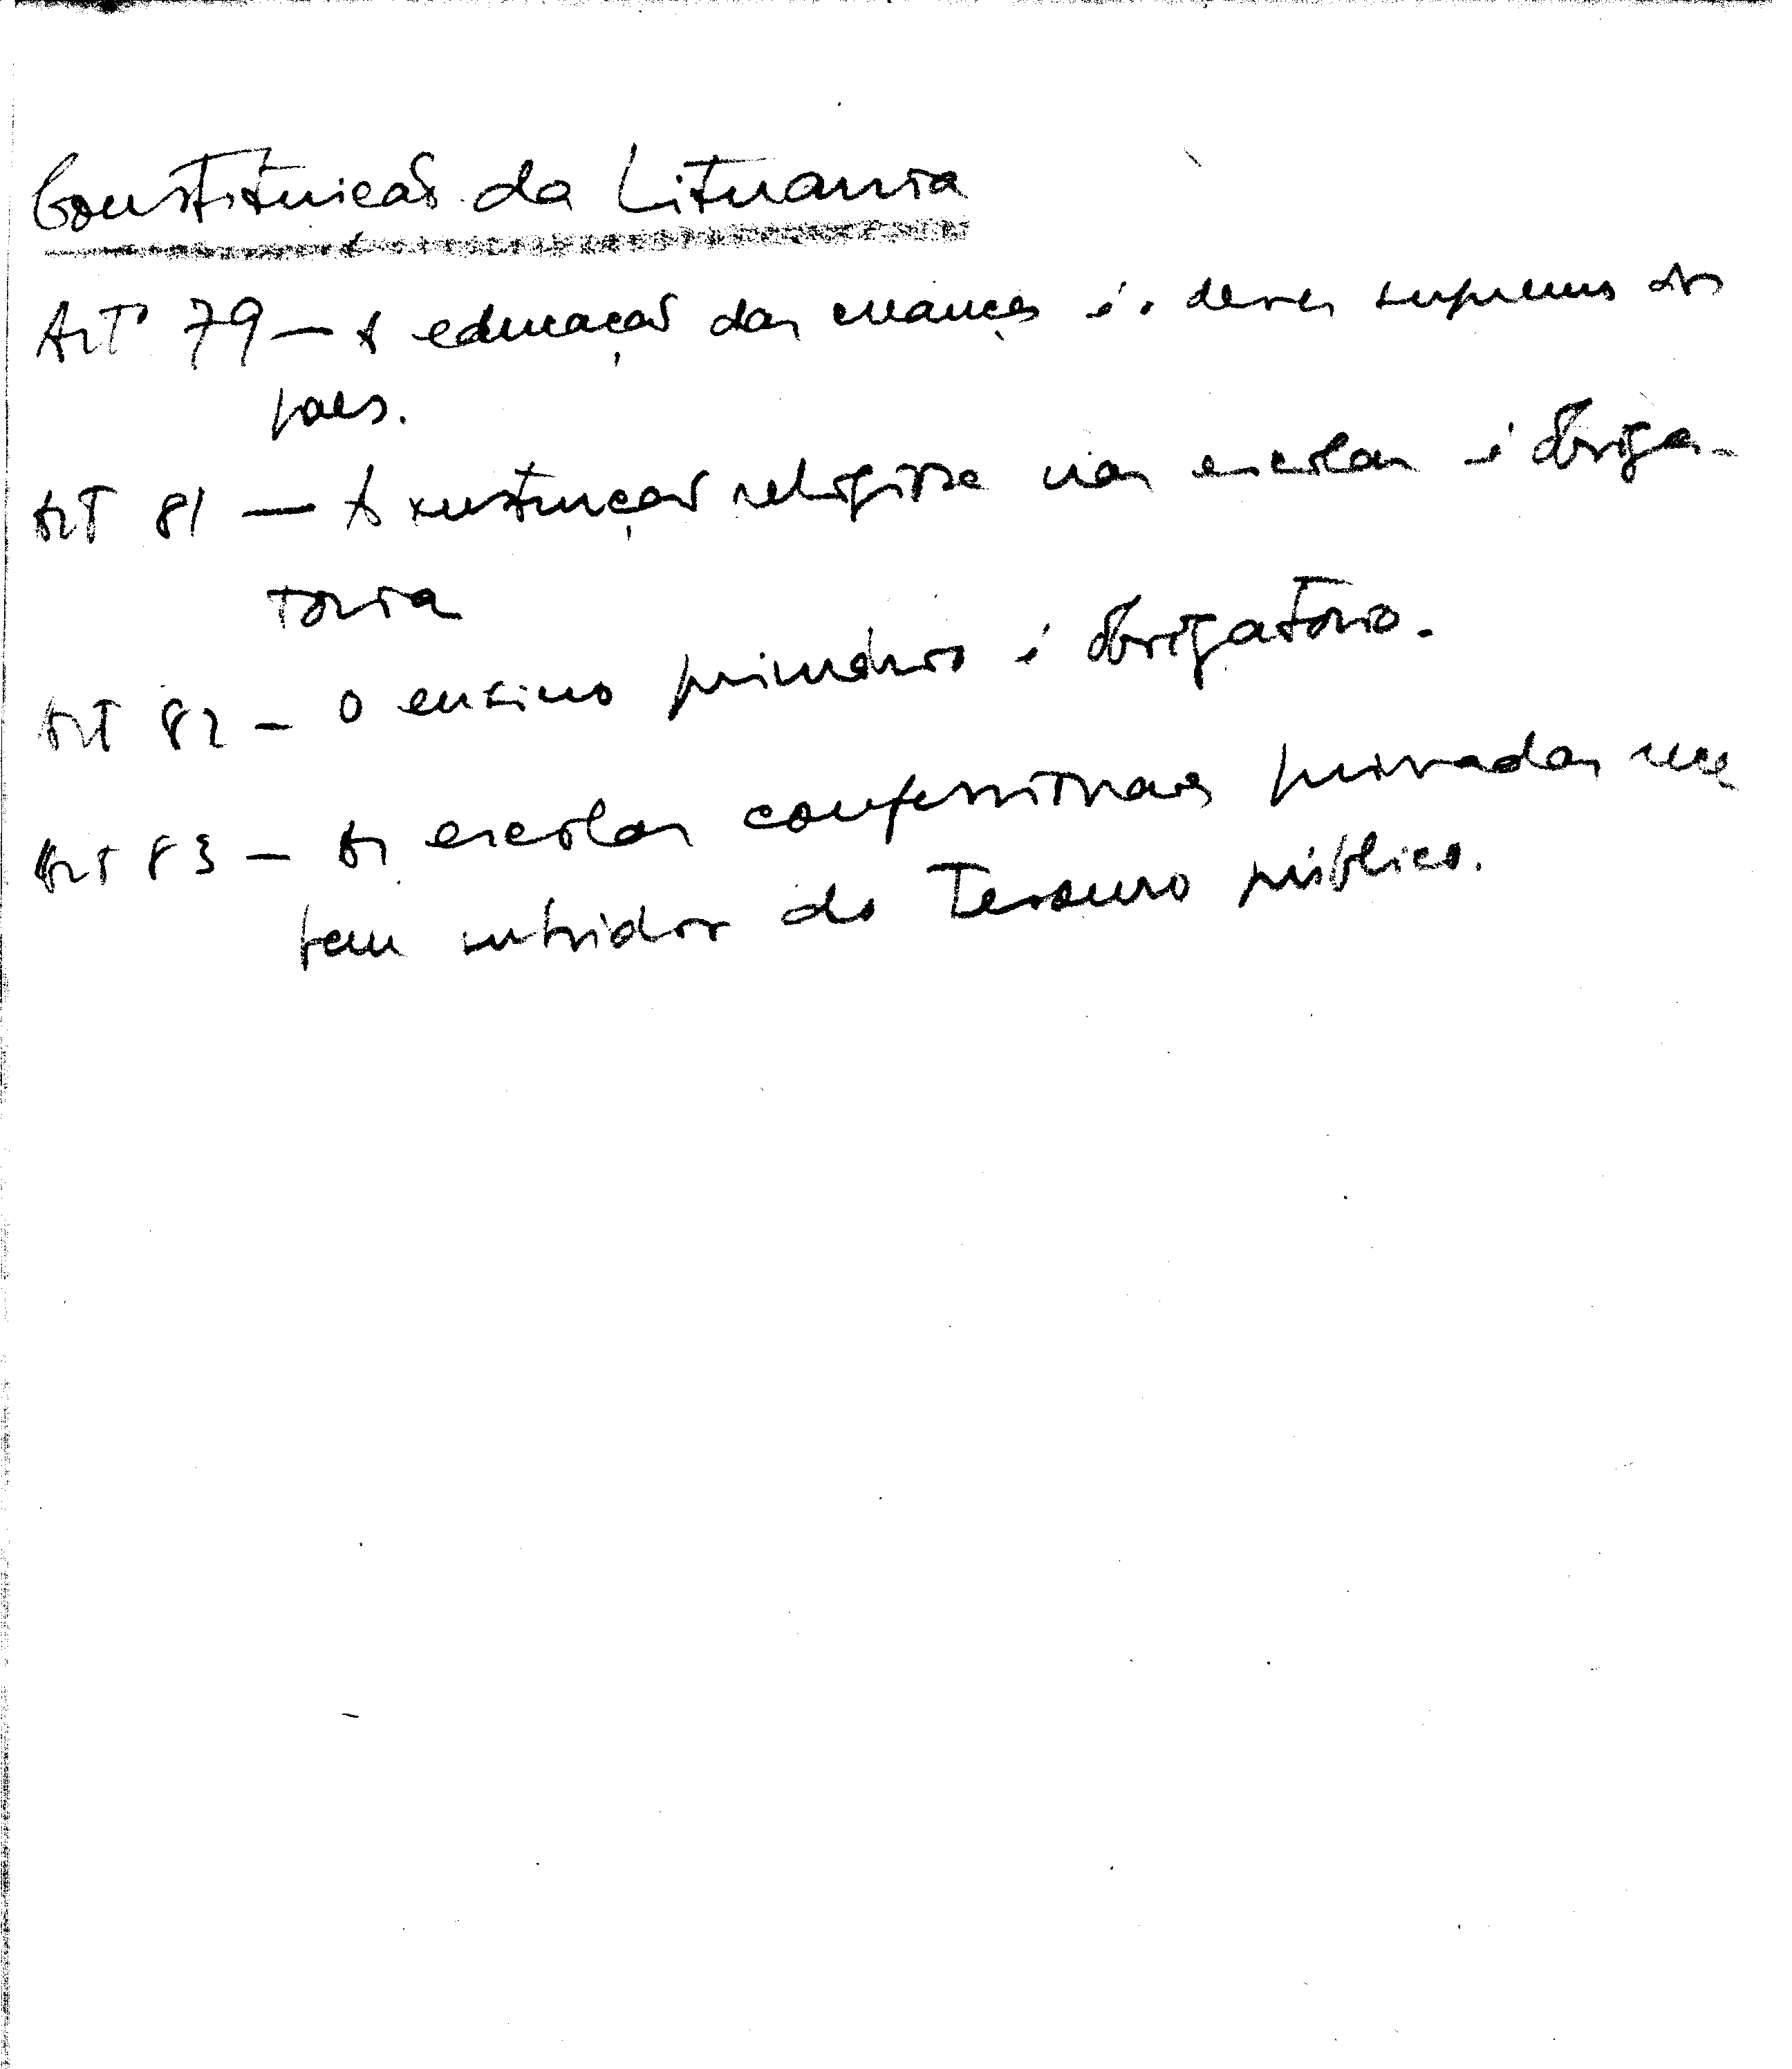 Constituição da Lituania
Artº 79 — A educação das creanças é o dever supremo dos
paes.
Art 81 — A instrucção religiosa nas escolas é obriga-
toria
Art 82 — O ensino primário é obrigatório.
Art 83 — As escolas confessionaes privadas rece
bem subsidios do Tesouro público.